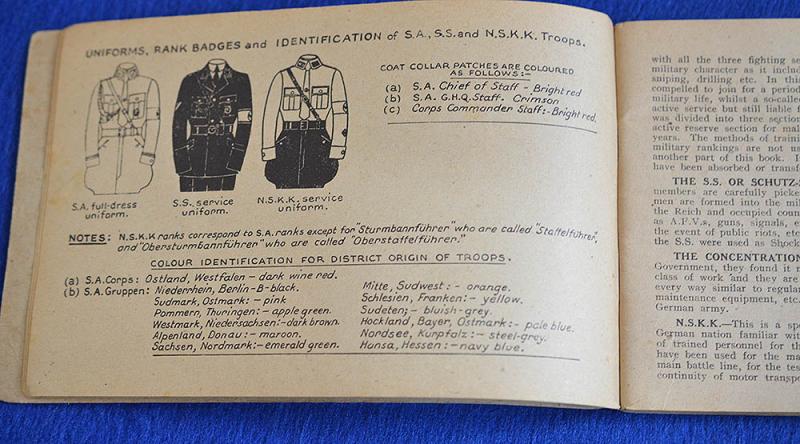 UNIFORMS, RANK BADGES and IDENTIFICATION of S.A., S.S. and N.S.K.K. TROOPS.
COAT COLLAR PATCHES ARE COLOURED
AS FOLLOWS:-
(a) S.A. Chief of Staff - Bright red
(b) S.A. G.H.Q. Staff. Crimson
(c) Corps Commander Staff:- Bright red.
S.A. full-dress
uniform.
S.S. service
uniform.
N.S.K.K. service
uniform.
NOTES: N.S.K.K ranks correspond to S.A. ranks except for "Sturmbannführer" who are called "Staffelführer,"
and "Obersturmbannführer" who are called "Oberstaffelführer."
COLOUR IDENTIFICATION FOR DISTRICT ORIGIN OF TROOPS.
(a) S.A. Corps: Ostland, Westfalen - dark wine red.
(b) S.A. Gruppen: Niederrhein, Berlin-B-black.
Sudmark, Ostmark: - pink
Pommern, Thuringen: - apple green.
Westmark, Niedersachsen:- dark brown.
Alpenland, Donau: - maroon.
Sachsen, Nordmark:- emerald green.
Mitte, Sudwest: - orange.
Schlesien, Franken: - yellow.
Sudeten; - bluish-grey.
Hockland, Bayer, Ostmark: - pale blue.
Nordsee, Kurpfalz: - steel-grey.
Hansa, Hessen: - navy blue.
with all the three fighting se
military character as it includ
sniping, drilling etc. In this
compelled to join for a period
military life, whilst a so-calle
active service but still liable f
was divided into three section
active reserve section for mal
years. The methods of traini
military rankings are not us
another part of this book. I
have been absorbed or transf
THE S.S. OR SCHUTZ-S
members are carefully picke
men are formed into the mil
the Reich and occupied coun
as A.F.V.s, guns, signals, e
the event of public riots, etc
the S.S. were used as Shock
THE CONCENTRATION
Government, they found it n
class of work and they are
every way similar to regular
maintenance equipment, etc.
German army.
N.S.K.K.—This is a spe
German nation familiar with
of trained personnel for th
have been used for the ma
main battle line, for the tes
continuity of motor transpo